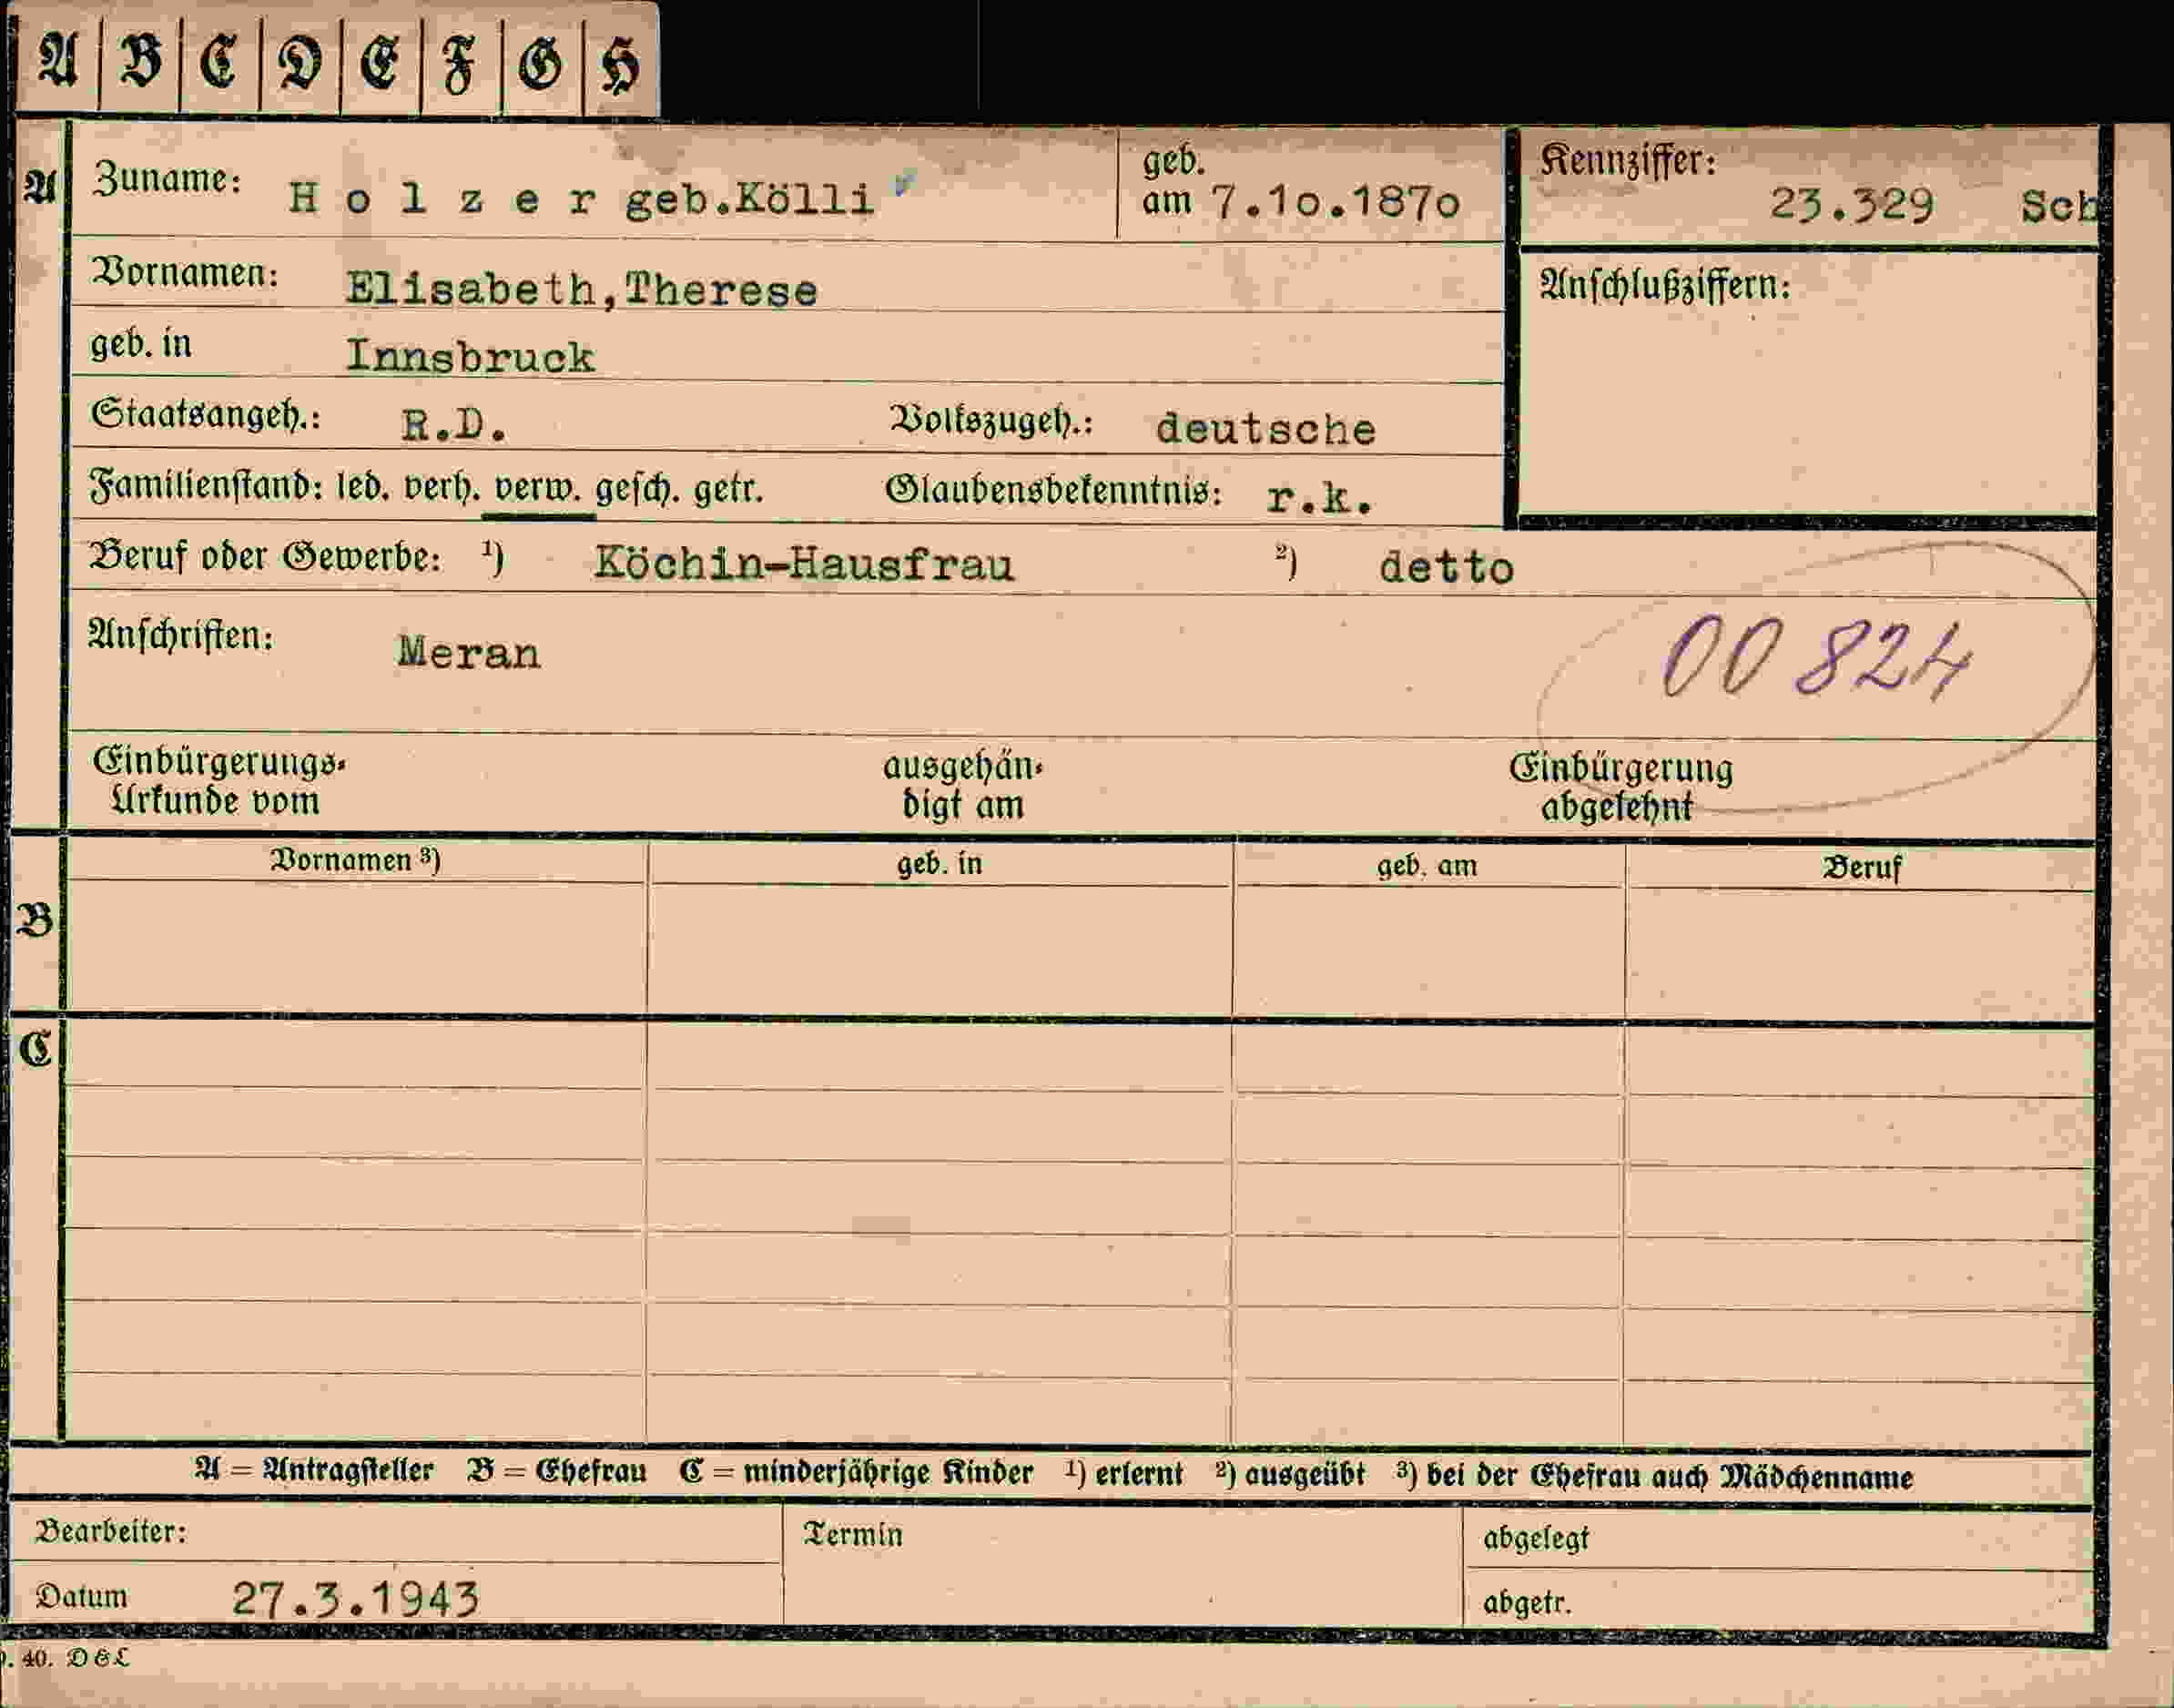 A B C D E F G H
A Zuname: H o l z e r geb.Kölli geb. am 7.1o.187o Kennziffer: 23.329 Sch
Vornamen: Elisabeth,Therese Anschlußziffern:
geb. in Innsbruck
Staatsangeh.: R.D. Volkszugeh.: deutsche
Familienstand: led. verh. verw. gesch. getr. Glaubensbekenntnis: r.k.
Beruf oder Gewerbe: ¹) Köchin-Hausfrau ²) detto
Anschriften: Meran 00 824
Einbürgerungs- ausgehän- Einbürgerung
Urkunde vom digt am abgelehnt
Vornamen ³) geb. in geb. am Beruf
B
C
A = Antragsteller B = Ehefrau C = minderjährige Kinder ¹) erlernt ²) ausgeübt ³) bei der Ehefrau auch Mädchenname
Bearbeiter: Termin abgelegt
Datum 27.3.1943 abgetr.
. 40. D&L